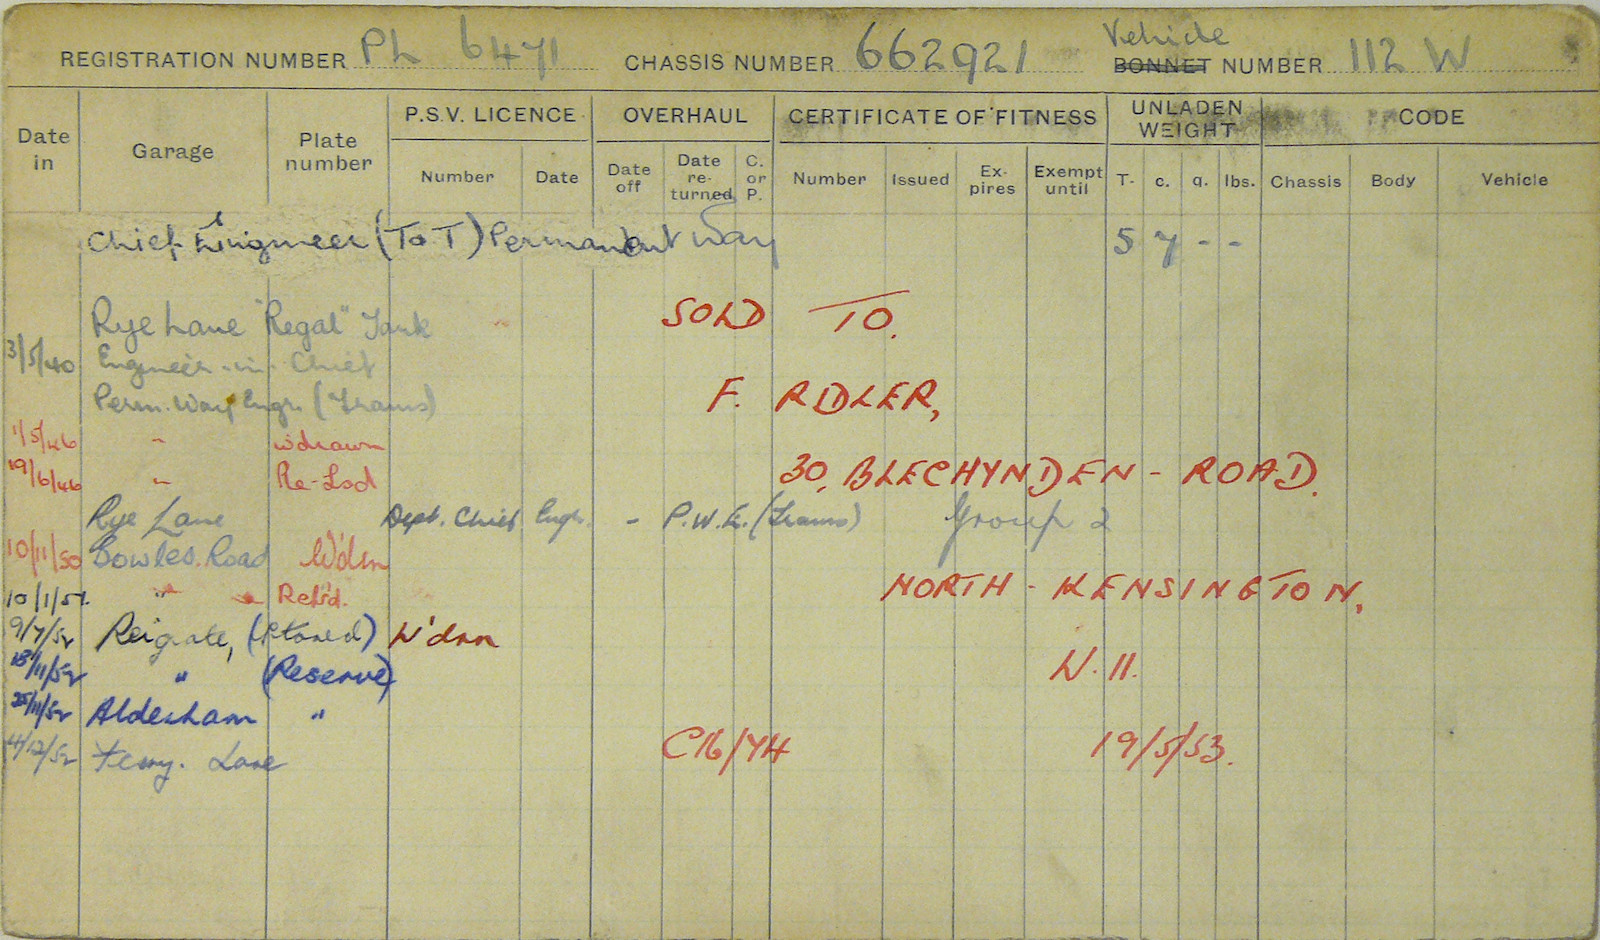 Vehicle
REGISTRATION NUMBER PL 6471 CHASSIS NUMBER 662921 BONNET NUMBER 112 W
Date in Garage Plate number P.S.V. LICENCE OVERHAUL CERTIFICATE OF FITNESS UNLADEN WEIGHT CODE
Number Date Date off Date re-turned C. or P. Number Issued Ex-pires Exempt until T. c. q. lbs. Chassis Body Vehicle
Chief Engineer (T o T) Permanent Way 5 7 - -
Rye Lane "Regal" Tank SOLD TO.
3/5/40 Engineer-in-Chief
Perm. Way Engr. (Trams) F. ADLER,
1/5/46 " wdrawn
19/6/46 " Re-Lsd 30, BLECHYNDEN - ROAD.
Rye Lane Dept. Chief Engr. - P.W.E. (Trams) Group 2
10/11/50 Bowles. Road W'drn
10/1/51. " " Relsd. NORTH - KENSINGTON,
9/7/52 Reigate, (Stored) W'drn
18/11/52 " (Reserve) W. 11.
25/11/52 Aldenham "
4/12/52 Ferry. Lane C16/74 19/5/53.